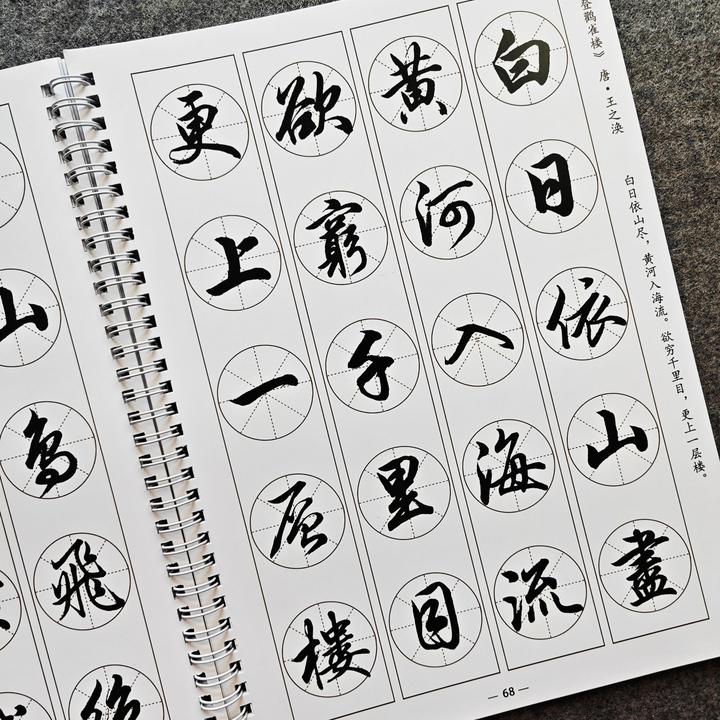 登鹳雀楼》 唐·王之涣
白日依山尽，黄河入海流。欲穷千里目，更上一层楼。
白日依山盡
黄河入海流
欲窮千里目
更上一層樓
山鳥飛
— 68 —